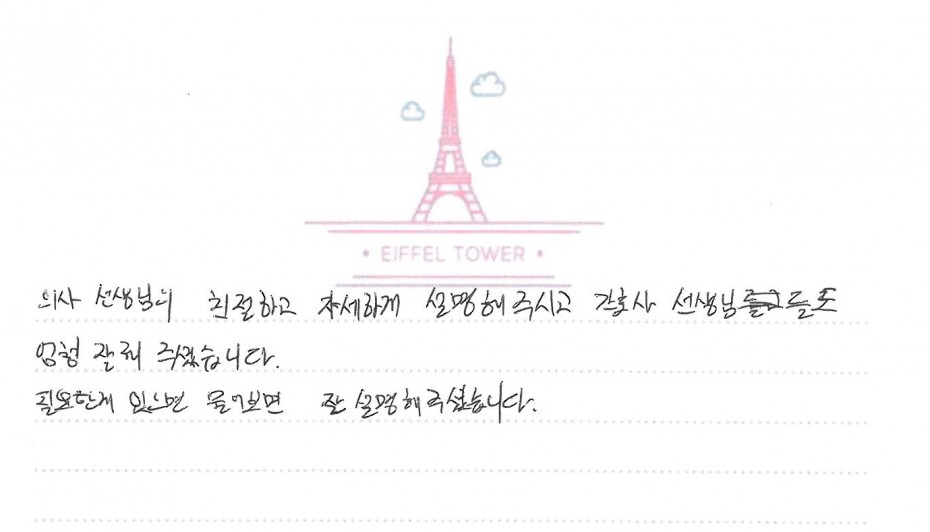 EIFFEL TOWER
의사 선생님의 친절하고 자세하게 설명해 주시고 간호사 선생님들도
엄청 잘해 주셨습니다.
필요한게 있으면 물어보면 잘 설명해주셨습니다.